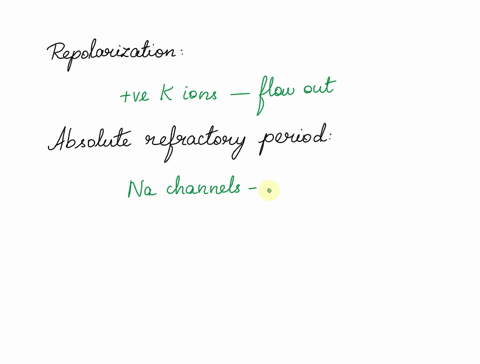 Repolarization:
+ve K ions — flow out
Absolute refractory period:
Na channels -